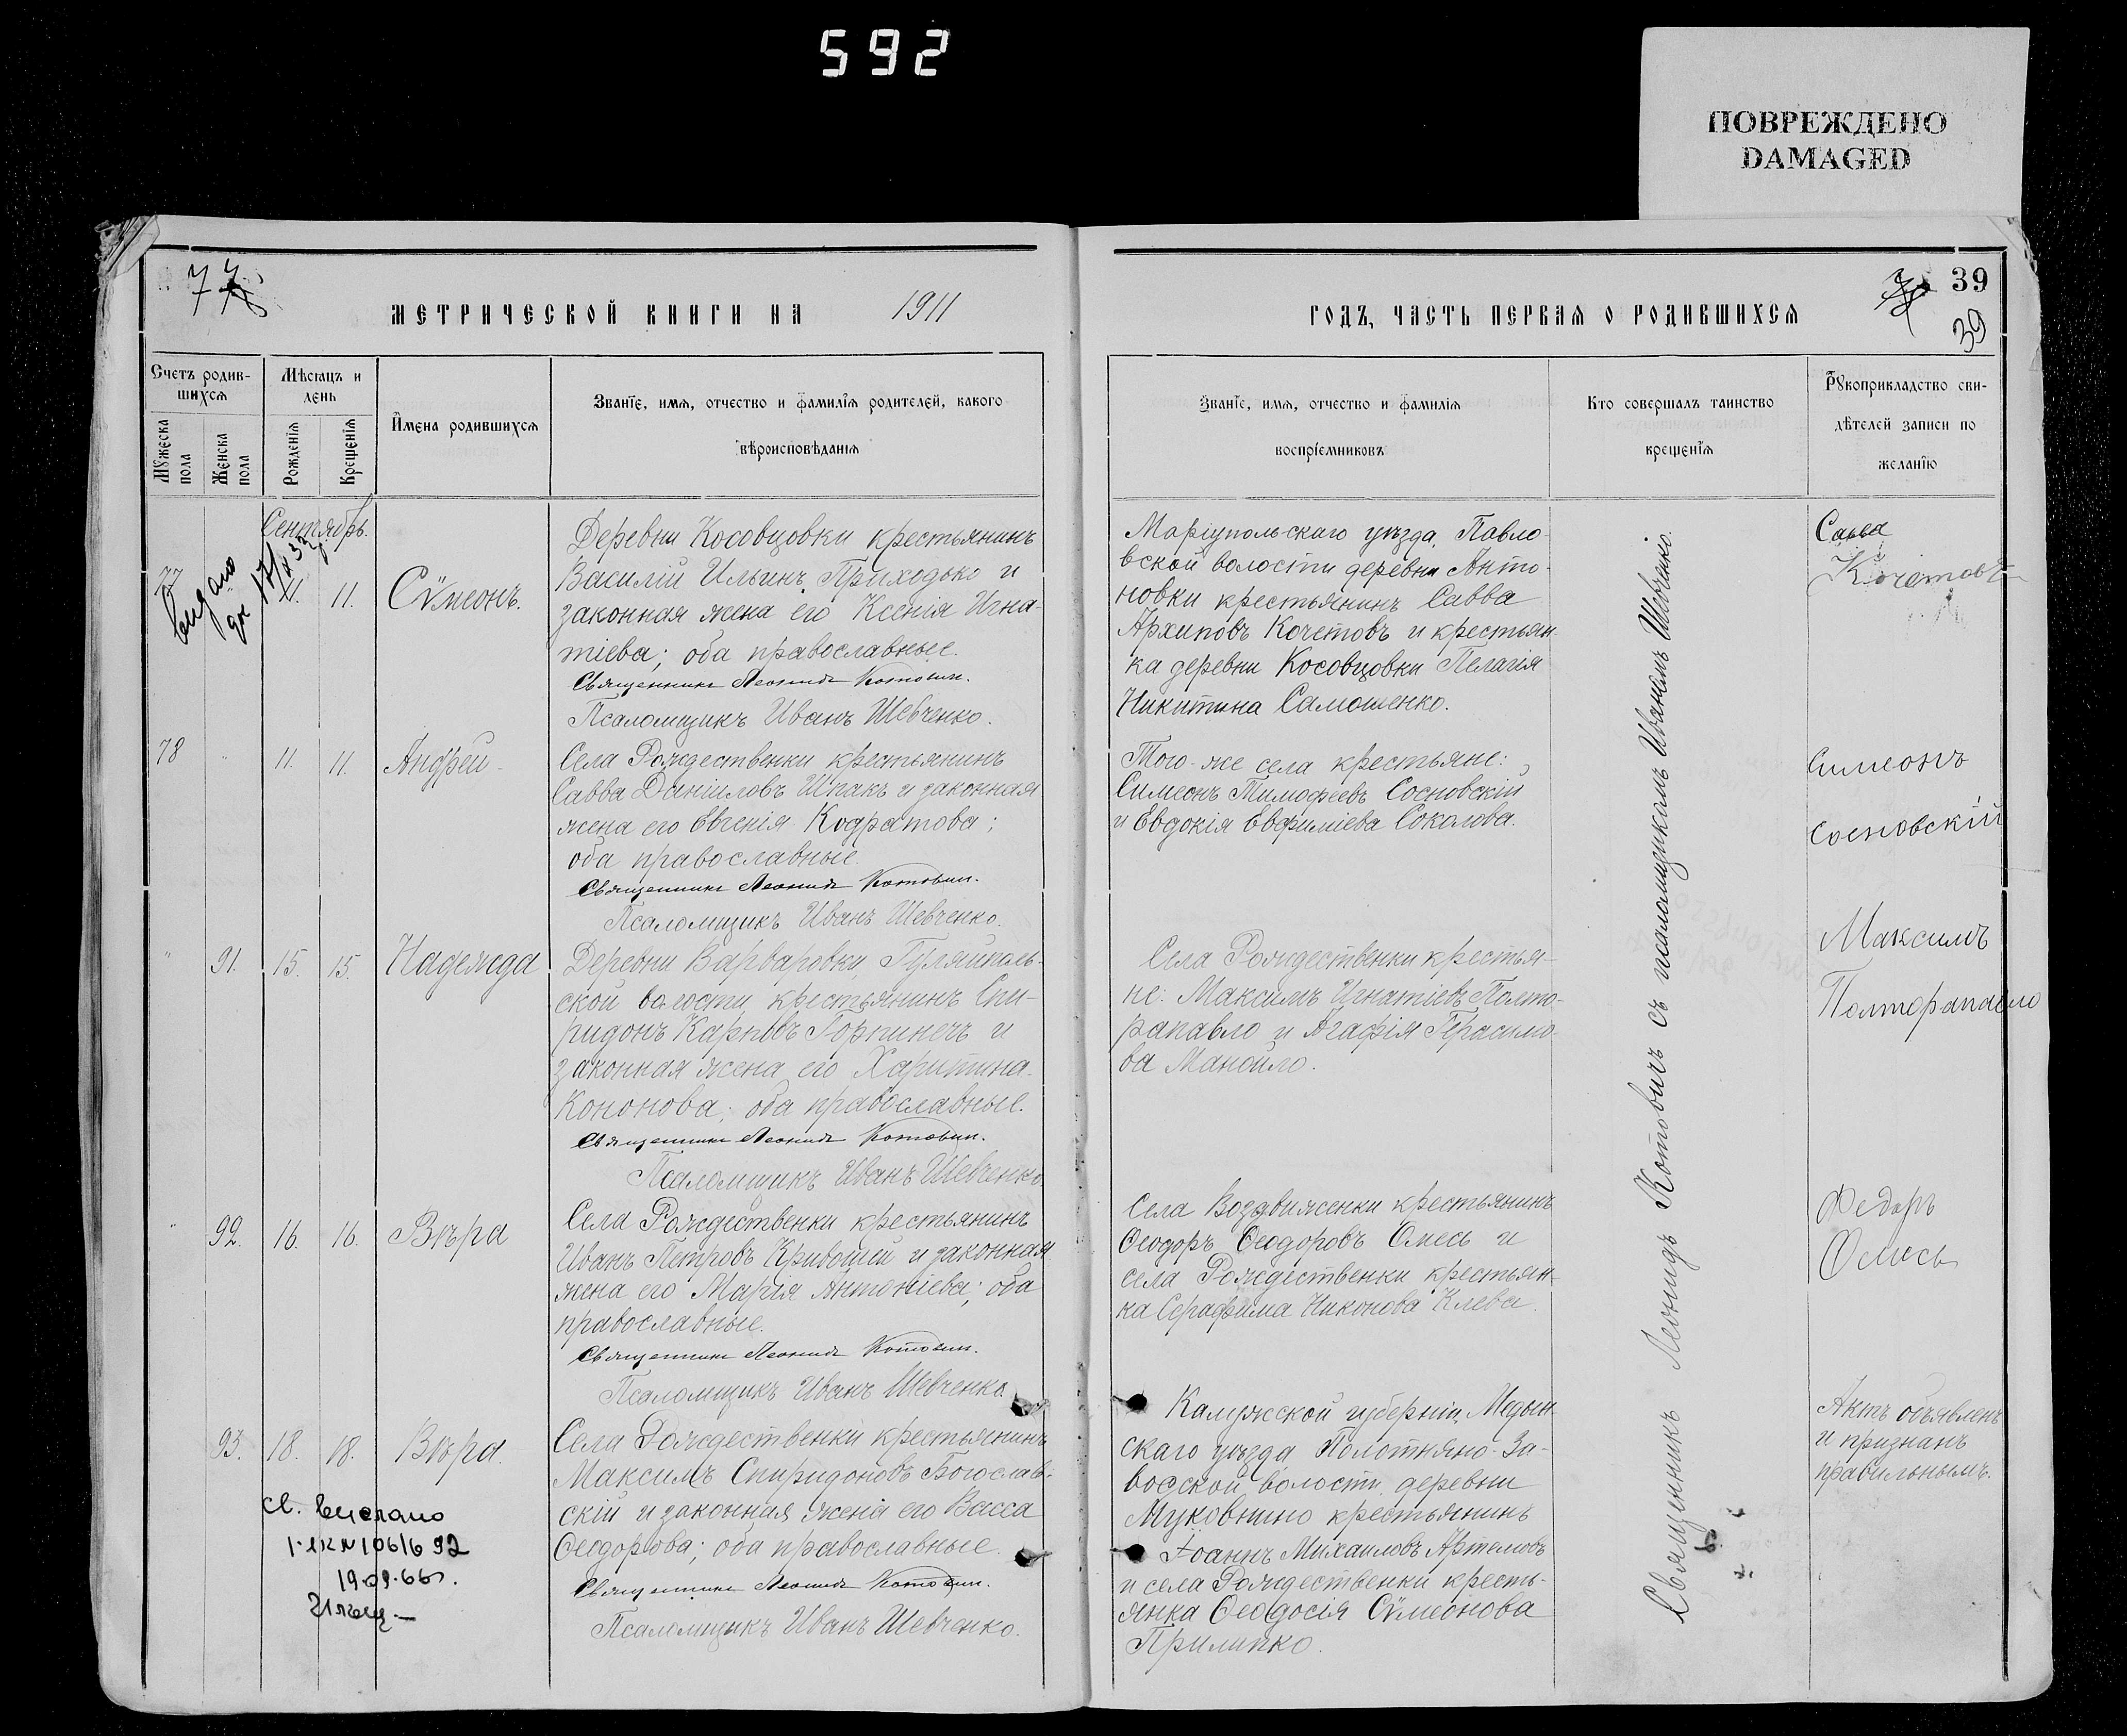 592
ПОВРЕЖДЕНО
DAMAGED
77
39
39
МЕТРИЧЕСКОЙ КНИГИ НА 1911
ГОДЪ, ЧАСТЬ ПЕРВАЯ О РОДИВШИХСЯ
Счетъ родив-
шихся
Мужеска пола
Женска пола
Мѣсяцъ и
день
Рожденія
Крещенія
Имена родившихся
Званіе, имя, отчество и фамилія родителей, какого
вѣроисповѣданія
Званіе, имя, отчество и фамилія
воспріемниковъ
Кто совершалъ таинство
крещенія
Рукоприкладство сви-
дѣтелей записи по
желанію
Сентябрь.
77
видано
11. 11. Сѵмеонъ.
Деревни Косовцовки крестьянинъ
Василій Ильинъ Приходько и
законная жена его Ксенія Игна-
тіева; оба православные.
Священникъ Леонидъ Котович.
Псаломщикъ Иванъ Шевченко.
Маріупольскаго уѣзда, Павло-
вской волости деревни Анто-
новки крестьянинъ Савва
Архиповъ Кочетовъ и крестьян-
ка деревни Косовцовки Пелагія
Никитина Самошенко.
Савва
Кочетовъ
78 " 11. 11. Андрей
Села Рождественки крестьянинъ
Савва Даніиловъ Шпакъ и законная
жена его Евгенія Кодратова;
оба православные.
Священникъ Леонидъ Котович.
Псаломщикъ Иванъ Шевченко.
Того-же села крестьяне:
Симеонъ Тимофеевъ Сосновскій
и Евдокія Евфиміева Соколова.
Симеонъ
Сосновскій
" 91. 15. 15. Надежда
Деревни Варваровки, Гуляйполь-
ской волости, крестьянинъ Спи-
ридонъ Карповъ Горпинечъ и
законная жена его Харитина
Кононова; оба православные.
Священникъ Леонидъ Котович.
Псаломщикъ Иванъ Шевченко.
Села Рождественки крестья-
не: Максимъ Игнатіевъ Полто-
рапавло и Агафія Герасимо-
ва Манойло.
Максимъ
Полторапавло
" 92. 16. 16. Вѣра
Села Рождественки крестьянинъ
Иванъ Петровъ Кривошей и законная
жена его Марія Антоніева; оба
православные.
Священникъ Леонидъ Котович.
Псаломщикъ Иванъ Шевченко.
Села Воздвиженки крестьянинъ
Ѳеодоръ Ѳеодоровъ Омесь и
села Рождественки крестьян-
ка Серафима Никонова Клева.
Федоръ
Омесь
93. 18. 18. Вѣра.
Села Рождественки крестьянинъ
Максимъ Спиридоновъ Богослав-
скій и законная жена его Васса
Ѳеодорова; оба православные.
Священникъ Леонидъ Котович.
Псаломщикъ Иванъ Шевченко.
св. выслано
19.09.66
Калужской губерніи, Медын-
скаго уѣзда Полотняно-За-
водской волости, деревни
Муковнино крестьянинъ
Іоаннъ Михаиловъ Артемовъ
и села Рождественки кресть-
янка Ѳеодосія Сѵмеонова
Прилипко.
Актъ объявленъ
и признанъ
правильнымъ.
Священникъ Леонидъ Котовичъ съ псаломщикомъ Иваномъ Шевченко.